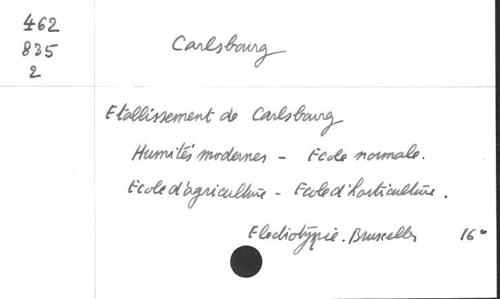 462
835
2
Carlsbourg
Etablissement de Carlsbourg
Humités modernes - Ecole normale.
Ecole d'agriculture - Ecole d'horticulture.
Electrotypie. Bruxelles 16°